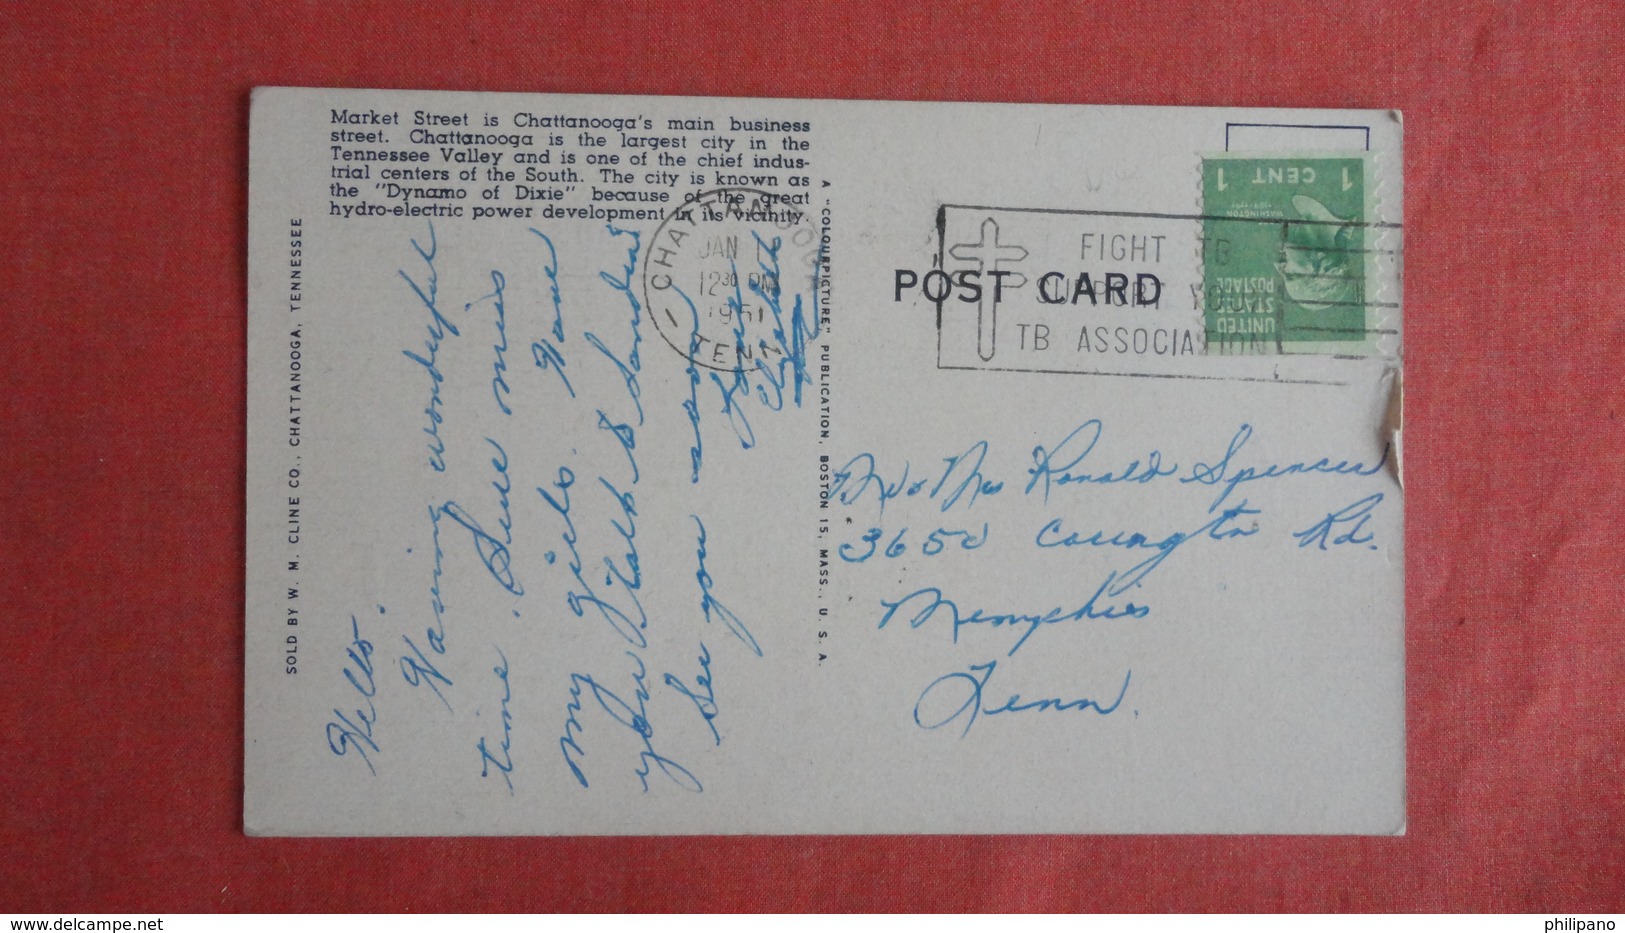 Market Street is Chattanooga's main business
street. Chattanooga is the largest city in the
Tennessee Valley and is one of the chief indus-
trial centers of the South. The city is known as
the "Dynamo of Dixie" because of the great
hydro-electric power development in its vicinity.
SOLD BY W. M. CLINE CO., CHATTANOOGA, TENNESSEE
Hello.
Having wonderful
time. Sure miss
my girls. Have
you
See you soon
Love
Elizabeth
A "COLOURPICTURE" PUBLICATION, BOSTON 15, MASS., U. S. A.
CHATTANOOGA
JAN 1
12 30 PM
1951
TENN.
POST CARD
FIGHT TB
SUPPORT YOUR
TB ASSOCIATION
1 CENT 1
WASHINGTON
UNITED
STATES
POSTAGE
Mr & Mrs Ronald Spencer
3650 Covington Rd.
Memphis
Tenn.
https://www.delcampe.net
philipano